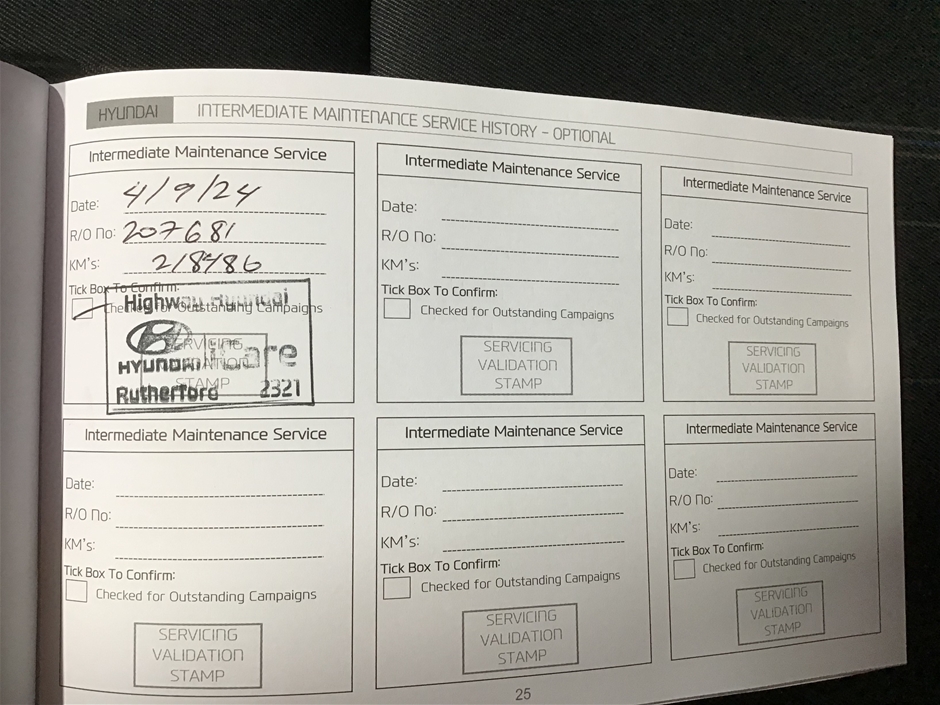 HYUNDAI INTERMEDIATE MAINTENANCE SERVICE HISTORY - OPTIONAL
Intermediate Maintenance Service
Date: 4/9/24
R/O No: 207681
KM's: 218486
Tick Box To Confirm:
Checked for Outstanding Campaigns
Highway Hyundai
SERVICING
VALIDATION
STAMP
HYUNDAI iCare
Rutherford 2321
Intermediate Maintenance Service
Date:
R/O No:
KM's:
Tick Box To Confirm:
Checked for Outstanding Campaigns
SERVICING
VALIDATION
STAMP
Intermediate Maintenance Service
Date:
R/O No:
KM's:
Tick Box To Confirm:
Checked for Outstanding Campaigns
SERVICING
VALIDATION
STAMP
Intermediate Maintenance Service
Date:
R/O No:
KM's:
Tick Box To Confirm:
Checked for Outstanding Campaigns
SERVICING
VALIDATION
STAMP
Intermediate Maintenance Service
Date:
R/O No:
KM's:
Tick Box To Confirm:
Checked for Outstanding Campaigns
SERVICING
VALIDATION
STAMP
Intermediate Maintenance Service
Date:
R/O No:
KM's:
Tick Box To Confirm:
Checked for Outstanding Campaigns
SERVICING
VALIDATION
STAMP
25